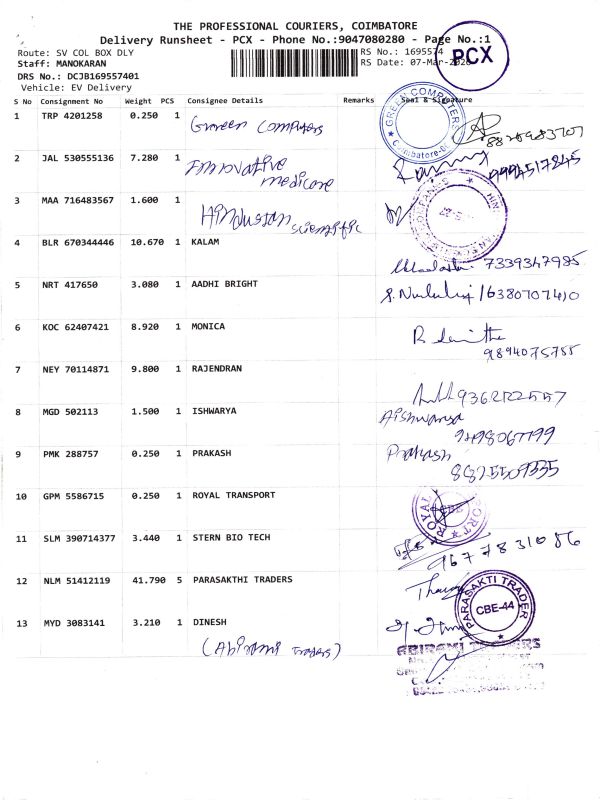 THE PROFESSIONAL COURIERS, COIMBATORE
Delivery Runsheet - PCX - Phone No.:9047080280 - Page No.:1
PCX
Route: SV COL BOX DLY
RS No.: 1695574
Staff: MANOKARAN
RS Date: 07-Mar-2026
DRS No.: DCJB169557401
Vehicle: EV Delivery
S No Consignment No Weight PCS Consignee Details Remarks Seal & Signature
1 TRP 4201258 0.250 1 Green Computers
GREEN COMPUTERS
Coimbatore
2 JAL 530555136 7.280 1 Innovative
medicare
3 MAA 716483567 1.600 1 Hindustan scientific
4 BLR 670344446 10.670 1 KALAM
7339347985
5 NRT 417650 3.080 1 AADHI BRIGHT
6380707410
6 KOC 62407421 8.920 1 MONICA
9894075755
7 NEY 70114871 9.800 1 RAJENDRAN
8 MGD 502113 1.500 1 ISHWARYA
Aishwarya
9 PMK 288757 0.250 1 PRAKASH
Prakash
10 GPM 5586715 0.250 1 ROYAL TRANSPORT
ROYAL
CBE
11 SLM 390714377 3.440 1 STERN BIO TECH
9677831086
12 NLM 51412119 41.790 5 PARASAKTHI TRADERS
PARASAKTI TRADER
CBE-44
13 MYD 3083141 3.210 1 DINESH
(Abirami Traders)
ABIRAMI TRADERS